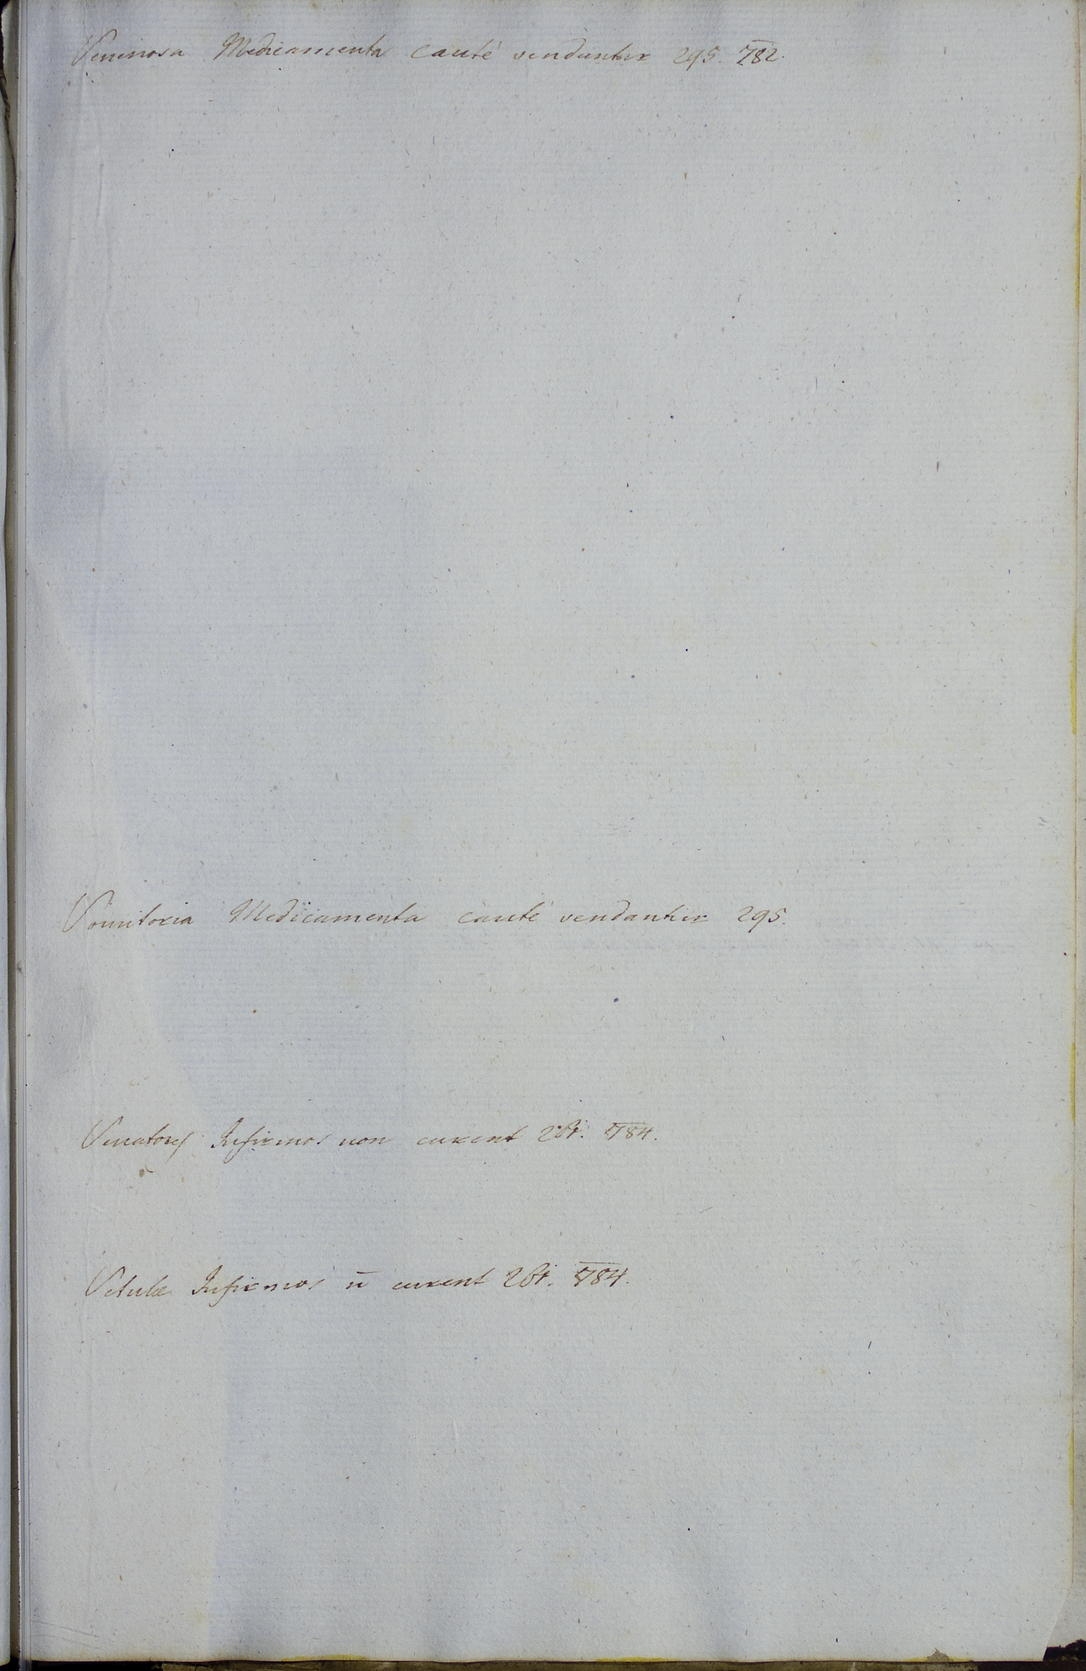 Veninosa Medicamenta cauté vendantur 295. 782.
Vomitoria Medicamenta cauté vendantur 295.
Venatores Infirmos non curent 784.
Vetulæ Infirmos n̄ curent 784.